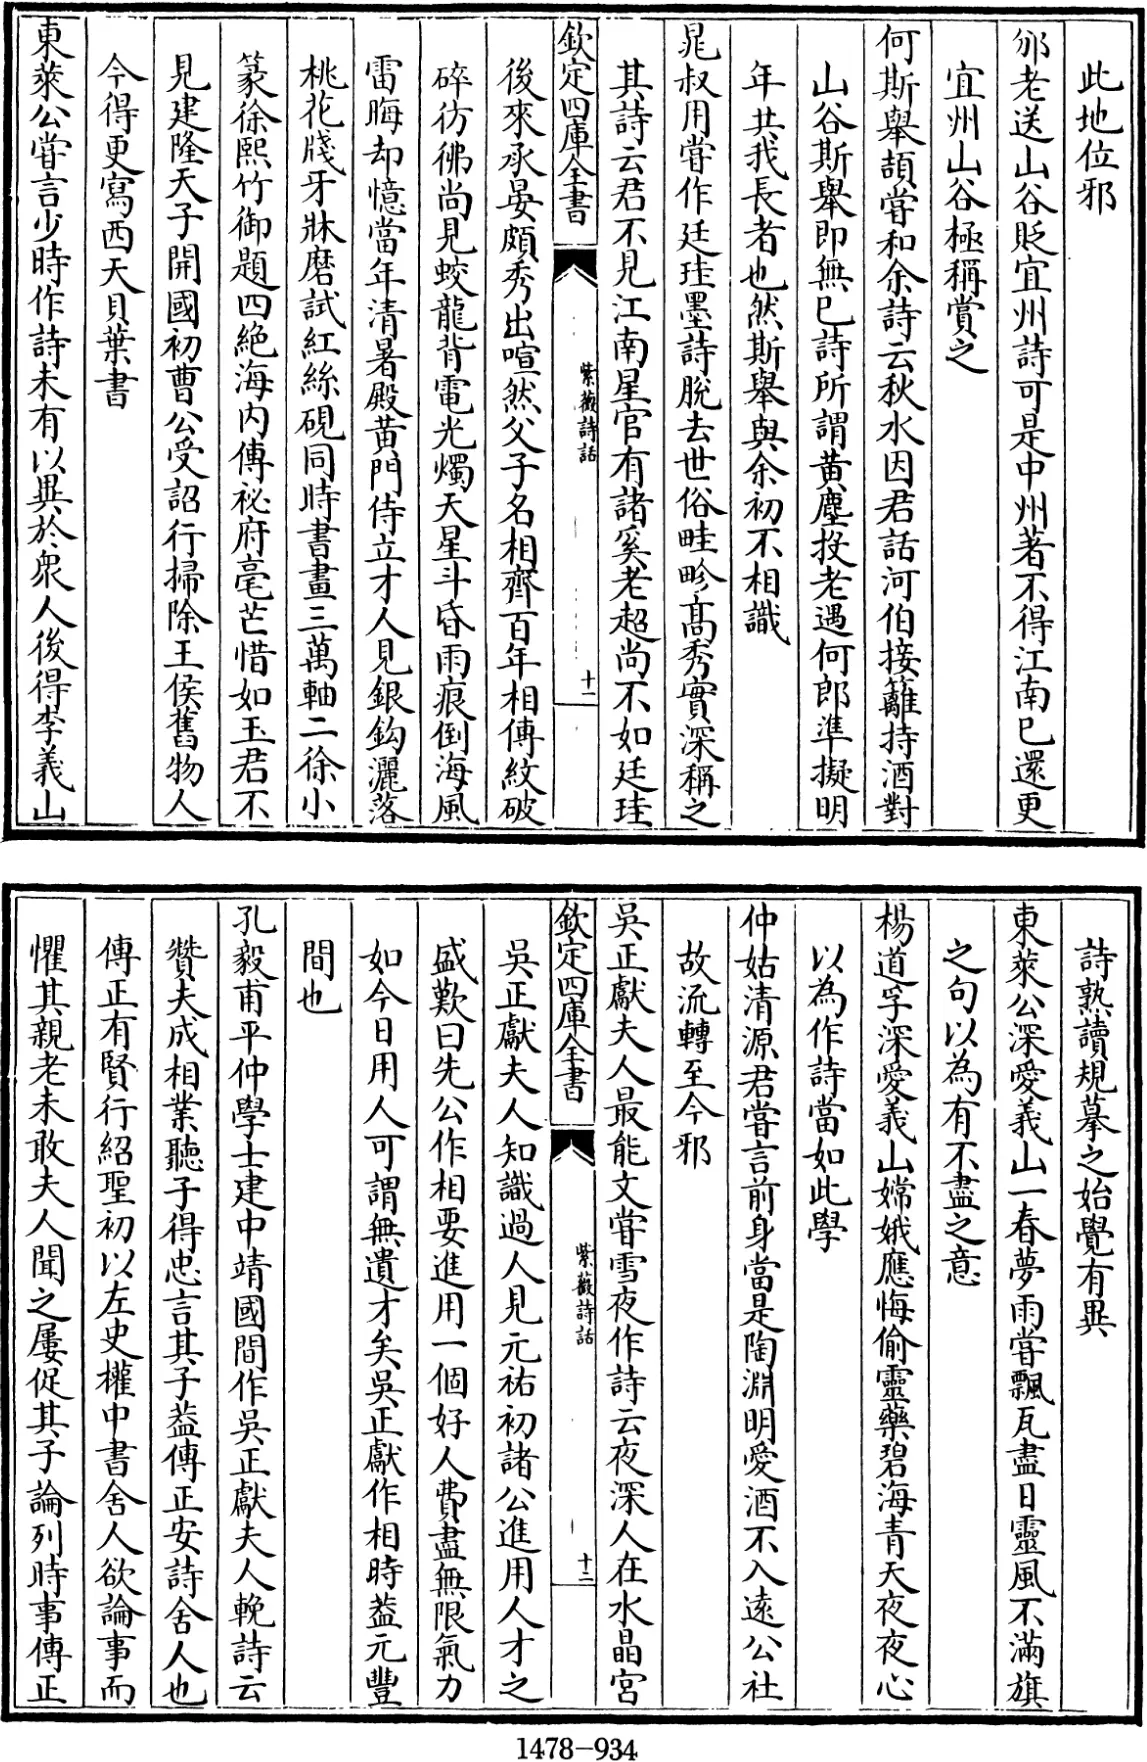 此地位邪
邠老送山谷貶宜州詩可是中州著不得江南已還更
宜州山谷極稱賞之
何斯舉頡嘗和余詩云秋水因君話河伯接籬持酒對
山谷斯舉即無已詩所謂黄塵投老遇何郎準擬明
年共我長者也然斯舉與余初不相識
晁叔用嘗作廷珪墨詩脫去世俗畦畛髙秀實深稱之
其詩云君不見江南星官有諸奚老超尚不如廷珪
欽定四庫全書
紫薇詩話
十一
後來承晏頗秀出喧然父子名相齊百年相傳紋破
碎彷彿尚見蛟龍背電光燭天星斗昏雨痕倒海風
雷晦却憶當年清暑殿黄門侍立才人見銀鈎灑落
桃花牋牙牀磨試紅絲硯同時書畫三萬軸二徐小
篆徐熙竹御題四絶海内傳祕府毫芒惜如玉君不
見建隆天子開國初曹公受詔行掃除王侯舊物人
今得更寫西天貝葉書
東萊公嘗言少時作詩未有以異於衆人後得李義山
詩熟讀規摹之始覺有異
東萊公深愛義山一春夢雨嘗飄瓦盡日靈風不滿旗
之句以為有不盡之意
楊道孚深愛義山嫦娥應悔偷靈藥碧海青天夜夜心
以為作詩當如此學
仲姑清源君嘗言前身當是陶淵明愛酒不入逺公社
故流轉至今邪
吳正獻夫人最能文嘗雪夜作詩云夜深人在水晶宮
欽定四庫全書
紫薇詩話
十二
吳正獻夫人知識過人見元祐初諸公進用人才之
盛歎曰先公作相要進用一個好人費盡無限氣力
如今日用人可謂無遺才矣吳正獻作相時葢元豐
間也
孔毅甫平仲學士建中靖國間作吳正獻夫人輓詩云
贊夫成相業聽子得忠言其子葢傳正安詩舍人也
傳正有賢行紹聖初以左史權中書舍人欲論事而
懼其親老未敢夫人聞之屢促其子論列時事傳正
1478-934